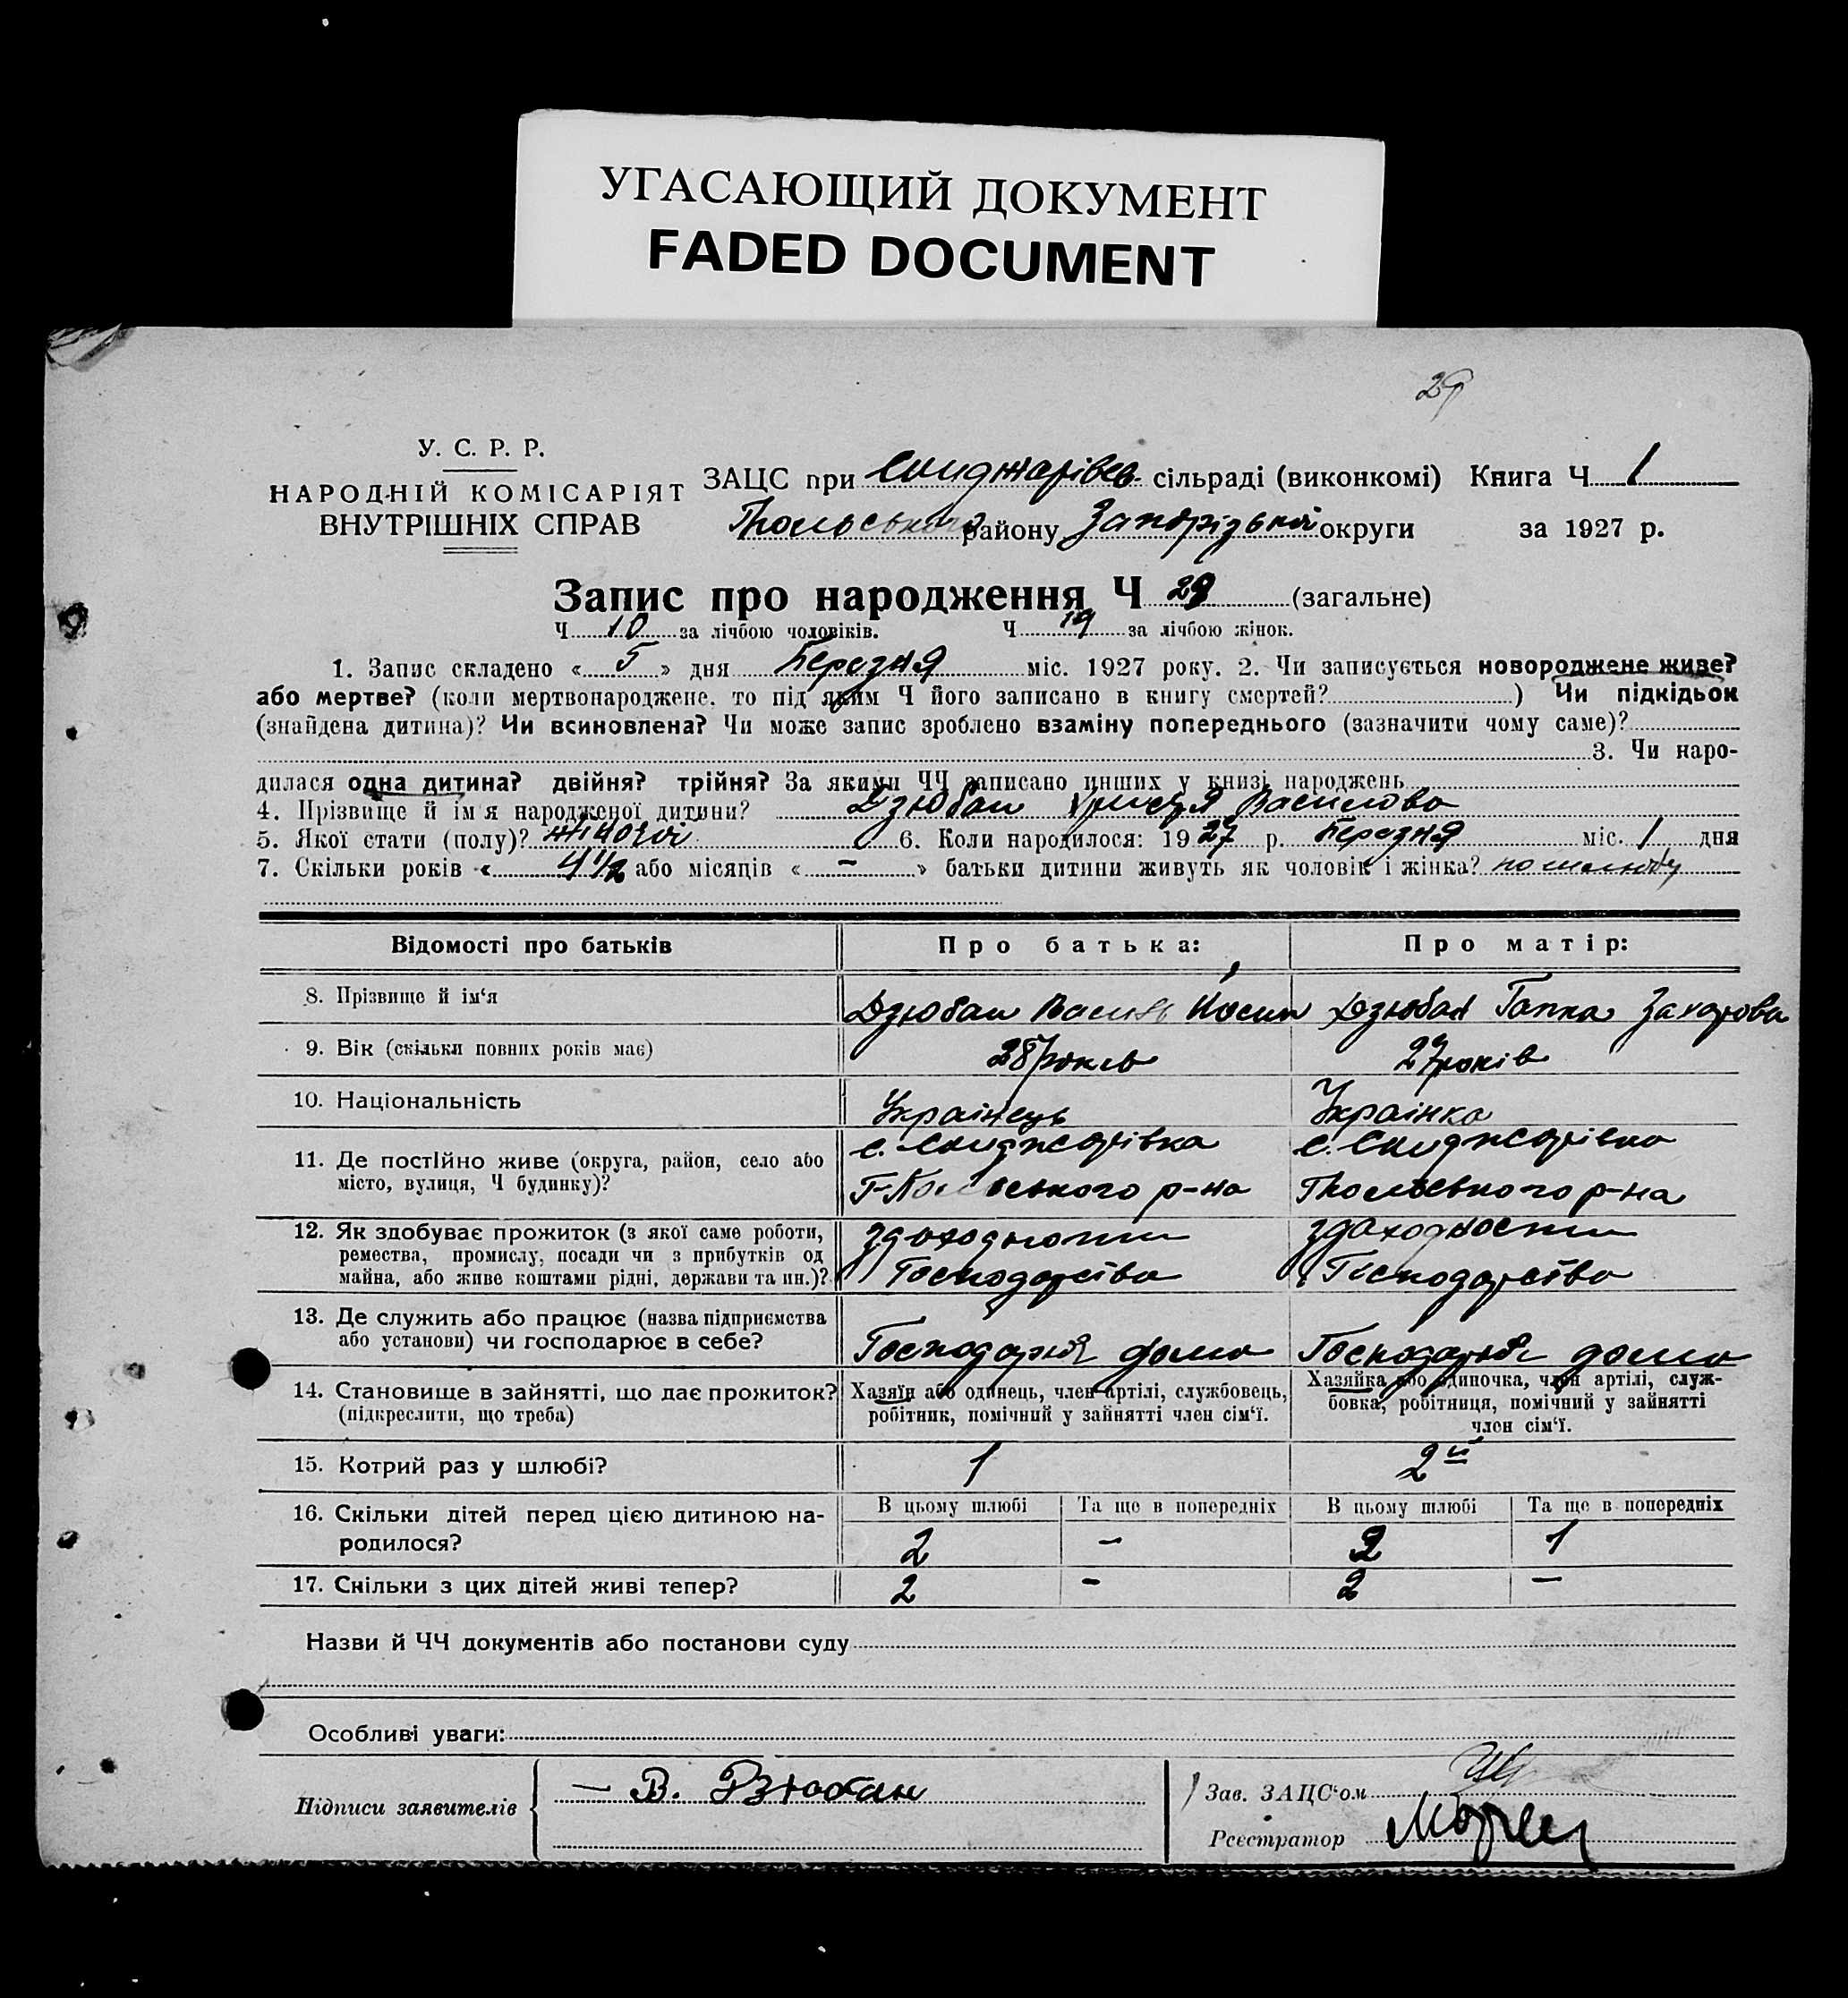 УГАСАЮЩИЙ ДОКУМЕНТ
FADED DOCUMENT
29
У. С. Р. Р.
НАРОДНІЙ КОМІСАРІЯТ
ВНУТРІШНІХ СПРАВ
ЗАЦС при Скиджарівск. сільраді (виконкомі) Книга Ч 1
району Запорізької округи за 1927 р.
Запис про народження Ч 29 (загальне)
Ч 10 за лічбою чоловіків. Ч 19 за лічбою жінок.
1. Запис складено « 5 » дня Березня міс. 1927 року. 2. Чи записується новороджене живе?
або мертве? (коли мертвонароджене. то під яким Ч його записано в книгу смертей? ) Чи підкідьок
(знайдена дитина)? Чи всиновлена? Чи може запис зроблено взаміну попереднього (зазначити чому саме)?
3. Чи наро-
дилася одна дитина? двійня? трійня? За якими ЧЧ записано инших у книзі народжень
4. Прізвище й ім'я народженої дитини? Дзюбан Василова
5. Якої стати (полу)? жіночої 6. Коли народилося: 1927 р. Березня міс. 1 дня
7. Скільки років « 4 1/2 або місяців « - » батьки дитини живуть як чоловік і жінка? по шлюбу
Відомості про батьків Про батька: Про матір:
8. Прізвище й ім'я Дзюбан Василь Йосип Дзюбан Гапка Захарова
9. Вік (скільки повних років має) 28 років 27 років
10. Національність Українець Українка
11. Де постійно живе (округа, район, село або с. Скиджарівка с. Скиджарівка
місто, вулиця, Ч будинку)? р-на р-на
12. Як здобуває прожиток (з якої саме роботи,
ремества, промислу, посади чи з прибутків од
майна, або живе коштами рідні, держави та ин.)? Господарства Господарства
13. Де служить або працює (назва підприємства
або установи) чи господарює в себе? Господарює дома Господарює дома
14. Становище в зайнятті, що дає прожиток? Хазяїн або одинець, член артілі, службовець, Хазяйка або одиночка, член артілі, служ-
(підкреслити, що треба) робітник, помічний у зайнятті член сім'ї. бовка, робітниця, помічний у зайнятті
член сім'ї.
15. Котрий раз у шлюбі? 1 2й
16. Скільки дітей перед цією дитиною на- В цьому шлюбі Та ще в попередніх В цьому шлюбі Та ще в попередніх
родилося? 2 - 2 1
17. Скільки з цих дітей живі тепер? 2 - 2 -
Назви й ЧЧ документів або постанови суду
Особливі уваги:
Підписи заявителів - В. Дзюбан Зав. ЗАЦС'ом
Реєстратор